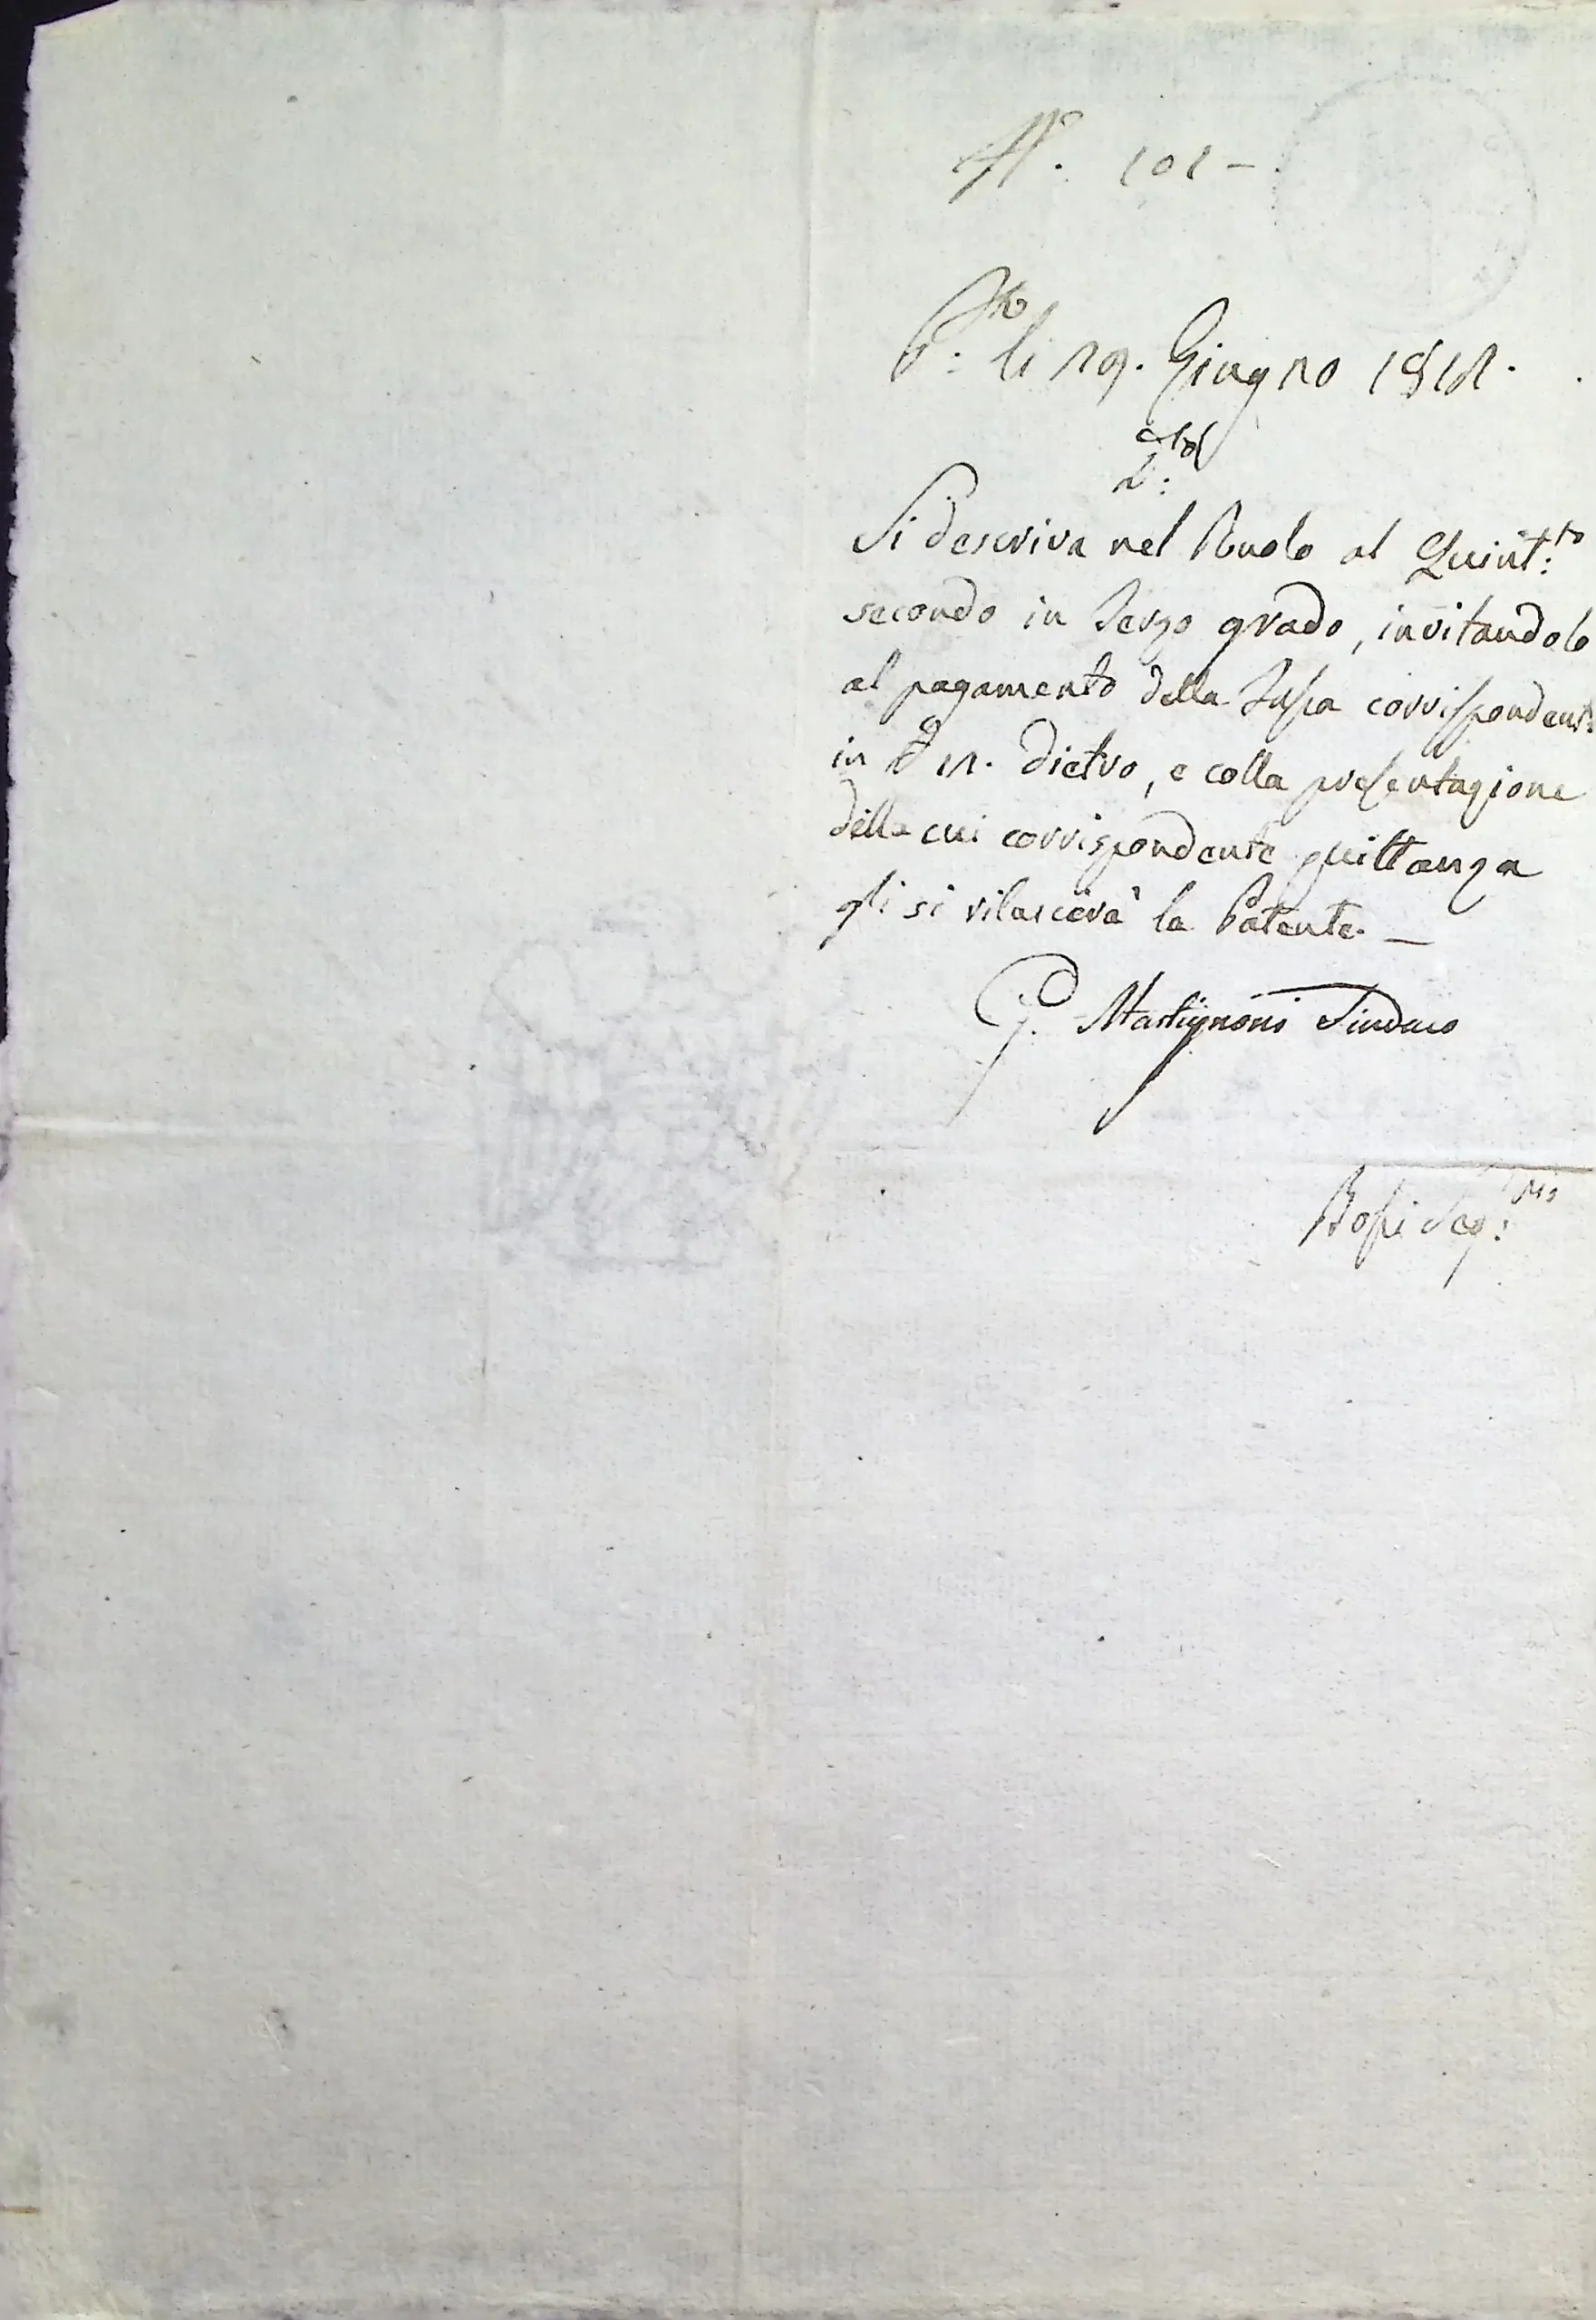 N.° 101 -
P.to li 19. Giugno 1812.
Si descriva nel Ruolo al Quint.to
secondo in Terzo grado, invitandolo
al pagamento della Tassa corrispondent
in 12. dietro, e colla presentazione
della cui corrispondente quittanza
gli si rilascerà la Patente. —
G. Martignoni Sindaco
Bossi Seg.rio